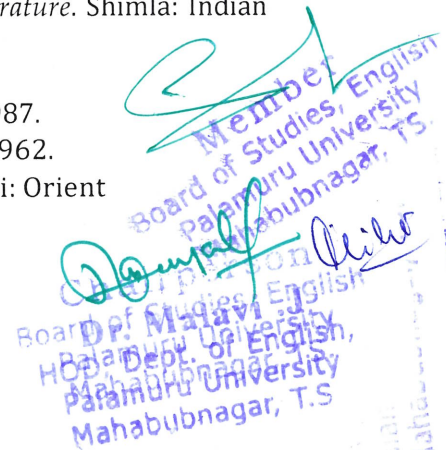 rature. Shimla: Indian
87.
962.
i: Orient
Member
Board of Studies, English
Palamuru University
Mahabubnagar, TS.
Chairperson
Board of Studies, English
Palamuru University
Mahabubnagar, T.S
Dr. Malavi .J
HOD, Dept. of English,
Palamuru University
Mahabubnagar, T.S